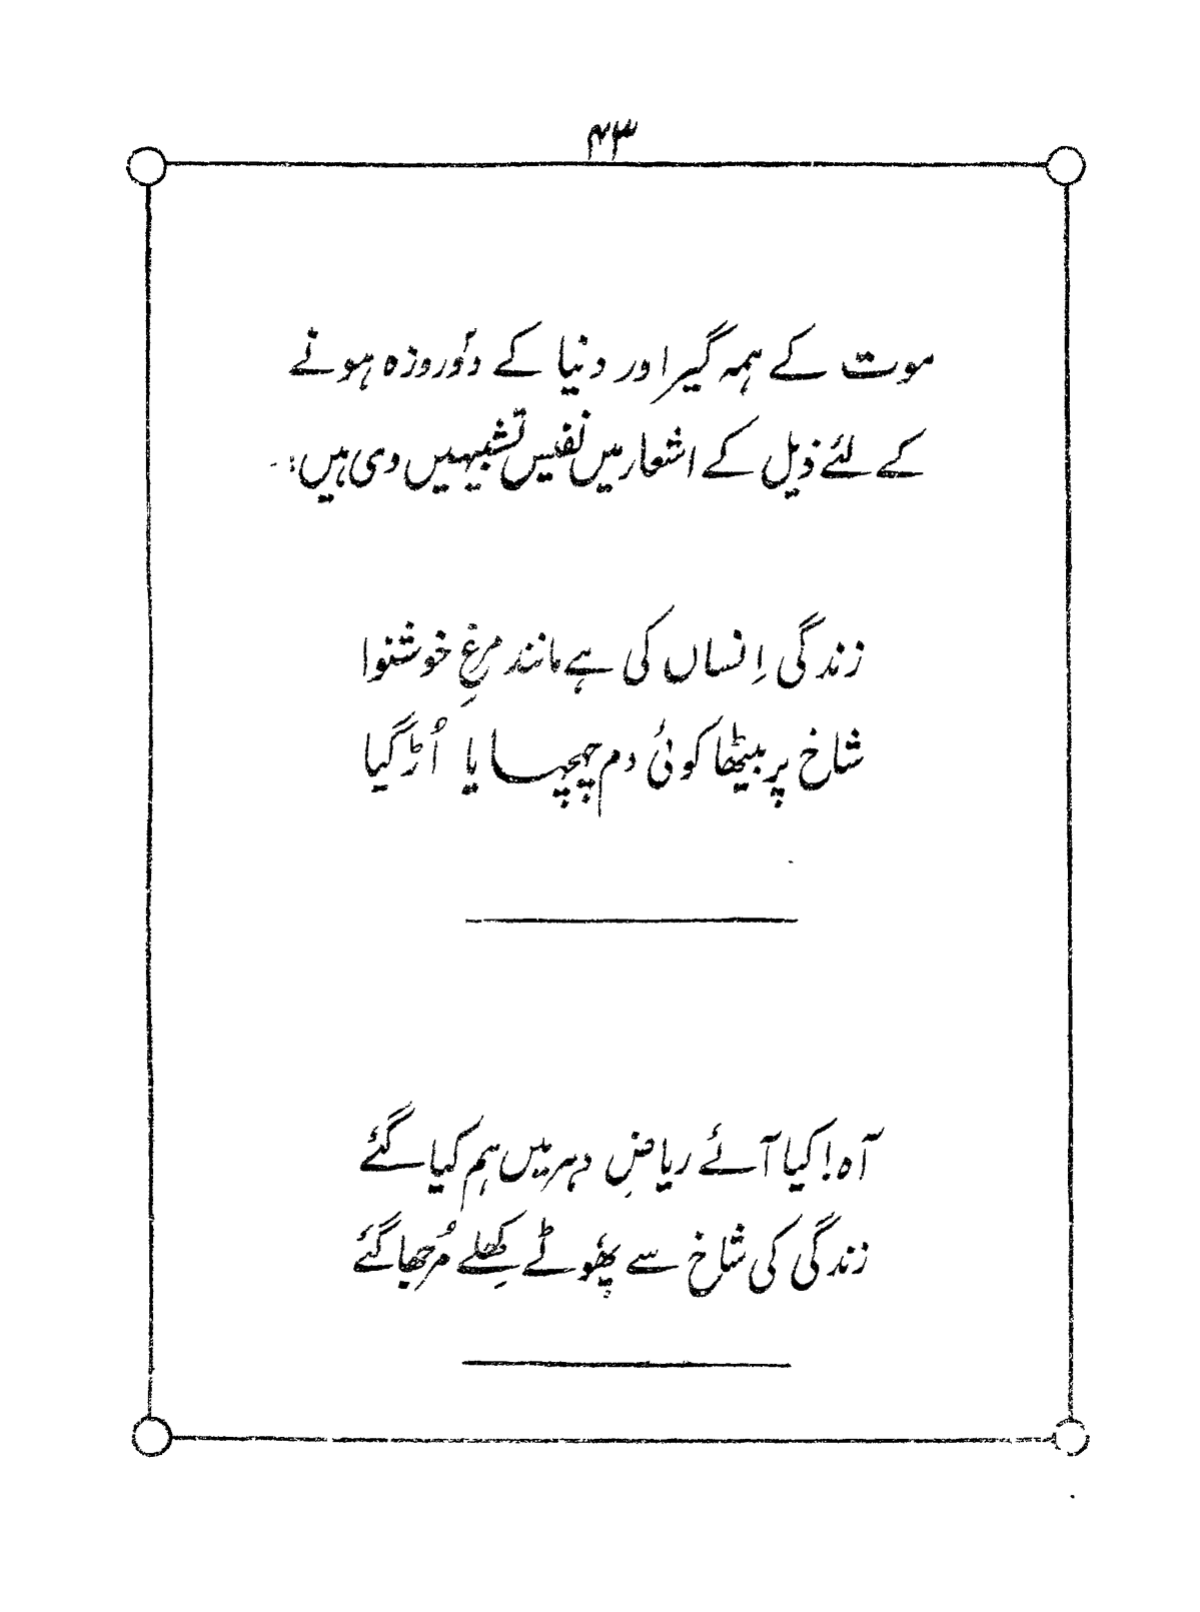 ۴۳
موت کے ہمہ گیر اور دنیا کے دَوروزہ ہونے
کے لئے ذیل کے اشعار میں نفیس تشبیہیں دی ہیں:-
زندگی اِنساں کی ہے مانند مرغِ خوشنوا
شاخ پر بیٹھا کوئی دم چہچہایا اُڑ گیا
آہ! کیا آئے ریاضِ دہر میں ہم کیا گئے
زندگی کی شاخ سے پھُوٹے کھِلے مُرجھا گئے